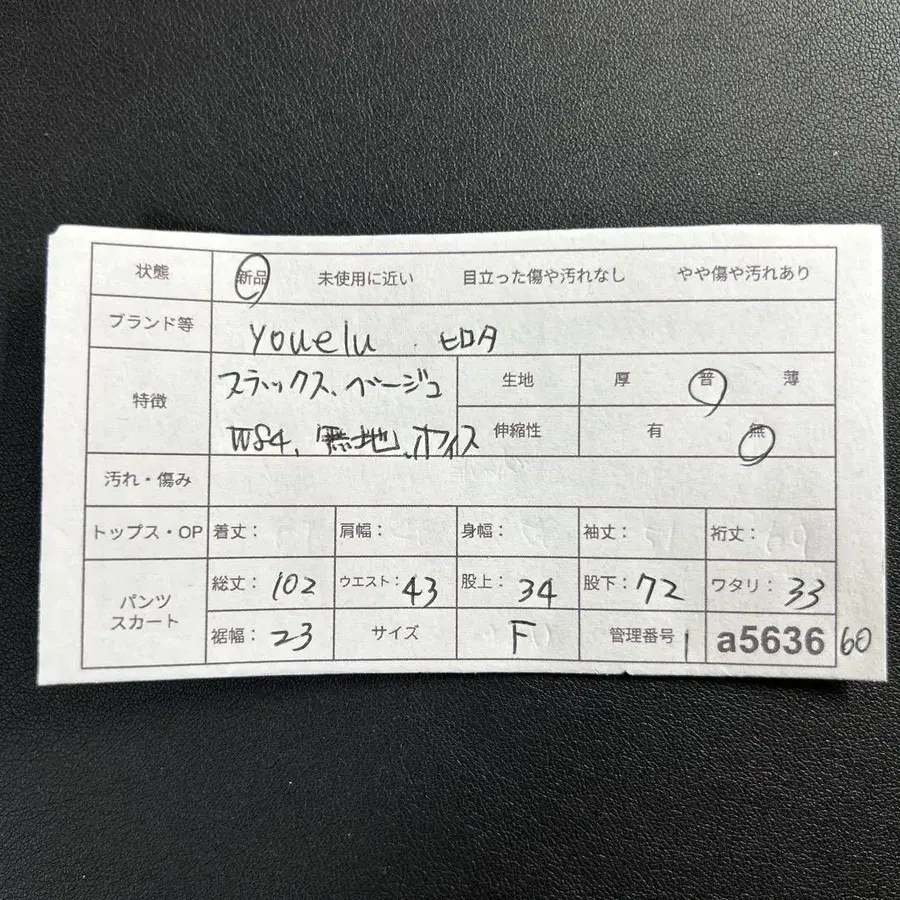 状態 新品 未使用に近い 目立った傷や汚れなし やや傷や汚れあり
ブランド等 youelu . ヒロタ
特徴 スラックス、ベージュ 生地 厚 普 薄
W84、無地、オフィス 伸縮性 有 無
汚れ・傷み
トップス・OP 着丈: 肩幅: 身幅: 袖丈: 裄丈:
パンツ スカート 総丈: 102 ウエスト: 43 股上: 34 股下: 72 ワタリ: 33
裾幅: 23 サイズ F 管理番号 1 a5636 60